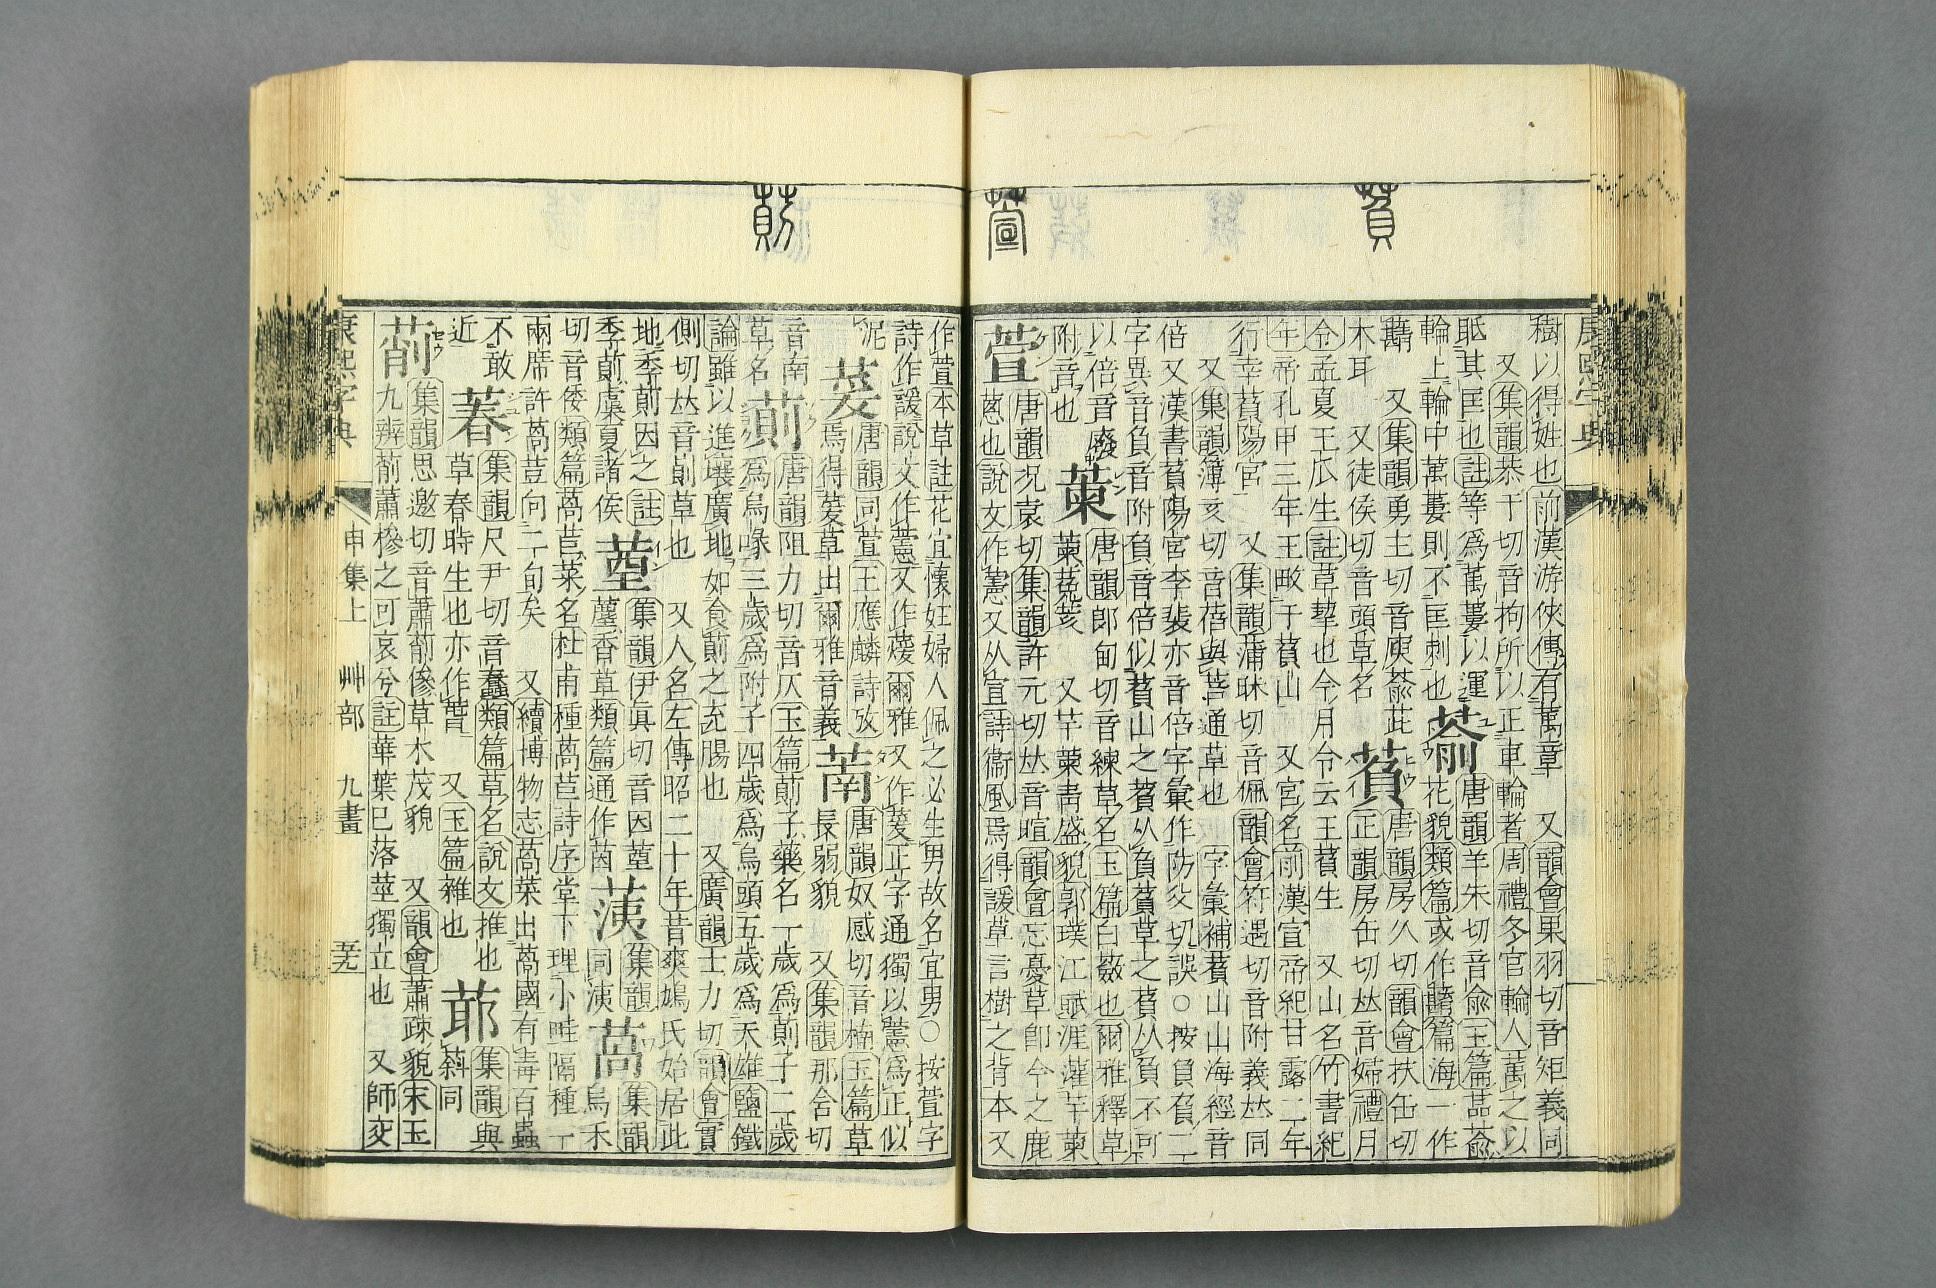 康熙字典
樹以得姓也前漢游俠傳有萬章　又韻會果羽切音矩義同
又集韻恭于切音拘所以正車輪者周禮冬官輪人萬之以
眂其匡也註等爲萬蔞以運
輪上輪中萬蔞則不匡刺也
萮
唐韻羊朱切音兪玉篇蒀萮
花貌類篇或作篇海一作
蘛　又集韻勇主切音庾萮茈
木耳　又徒侯切音頭草名
萯
唐韻房久切韻會扶缶切
正韻房缶切𠀤音婦禮月
令孟夏王瓜生註草挈也今月令云王萯生　又山名竹書紀
年帝孔甲三年王畋于萯山　又宮名前漢宣帝紀甘露二年
行幸萯陽宮　又集韻蒲昧切音佩韻會符遇切音附義𠀤同
又集韻簿亥切音蓓與菩通草也　字彙補萯山山海經音
倍又漢書萯陽宮李斐亦音倍字彙作防父切誤○按負萯二
字異音負音附負音倍似萯山之萯从負萯草之萯从負不可
以倍音廢
附音也
萰
唐韻郎甸切音練草名玉篇白蘞也爾雅釋草
萰菟荄　又芊萰靑盛貌郭璞江賦涯灌芊萰
萱
唐韻况袁切集韻許元切𠀤音暄韻會忘憂草卽今之鹿
蔥也說文作藼又从宣詩衞風焉得諼草言樹之背本又
作萱本草註花宜懷妊婦人佩之必生男故名宜男○按萱字
詩作諼說文作藼又作蕿爾雅又作萲正字通獨以藼爲正似
泥
萲
唐韻同萱王應麟詩攷
焉得萲草出爾雅音義
萳
唐韻奴感切音楠玉篇草
長弱貌　又集韻那含切
音南
草名
萴
唐韻阻力切音仄玉篇萴子藥名一歲爲萴子二歲
爲烏喙三歲爲附子四歲爲烏頭五歲爲天雄鹽鐵
論雖以進壤廣地如食萴之充腸也　又廣韻士力切韻會實
側切𠀤音崱草也　又人名左傳昭二十年昔爽鳩氏始居此
地季萴因之註
季萴虞夏諸侯
集韻伊眞切音因
香草類篇通作茵
萵
集韻
烏禾
切音倭類篇萵苣菜名杜甫種萵苣詩序堂下理小畦隔種一
兩席許萵苣向二旬矣　又續博物志萵菜出萵國有毒百蟲
不敢
近
萶
集韻尺尹切音蠢類篇草名說文推也
草春時生也亦作萅　又玉篇雜也
集韻與
同
萷
集韻思邀切音蕭萷傪草木茂貌　又韻會蕭疎貌宋玉
九辨萷蕭槮之可哀兮註華葉已落莖獨立也　又師交
康熙字典　申集上　艸部　九畫